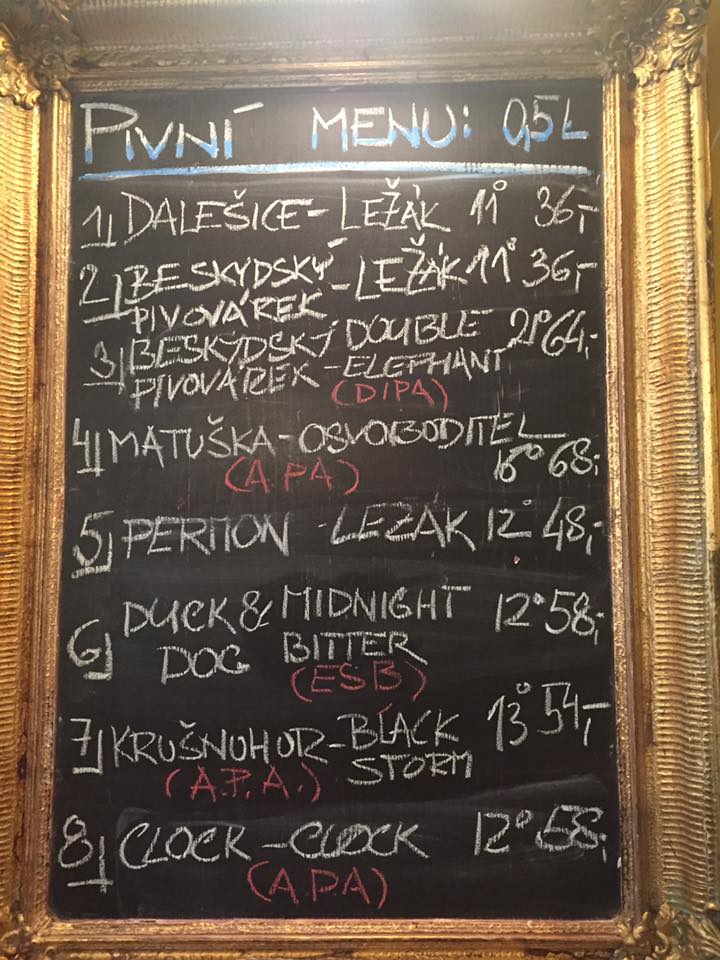 PIVNÍ MENU: 0,5L
1, DALEŠICE - LEŽÁK 11° 36,-
2, BESKYDSKÝ - LEŽÁK 11° 36,-
PIVOVÁREK
3, BESKYDSKÝ DOUBLE 21° 64,-
PIVOVÁREK - ELEPHANT
(DIPA)
4, MATUŠKA - OSVOBODITEL
(A.PA) 16° 68,-
5, PERMON - LEŽÁK 12° 48,-
6, DUCK & MIDNIGHT 12° 58,-
DOG BITTER
(ESB)
7, KRUŠNOHOR - BLACK 13° 54,-
STORM
(A.P.A.)
8, CLOCK - CLOCK 12° 58,-
(APA)